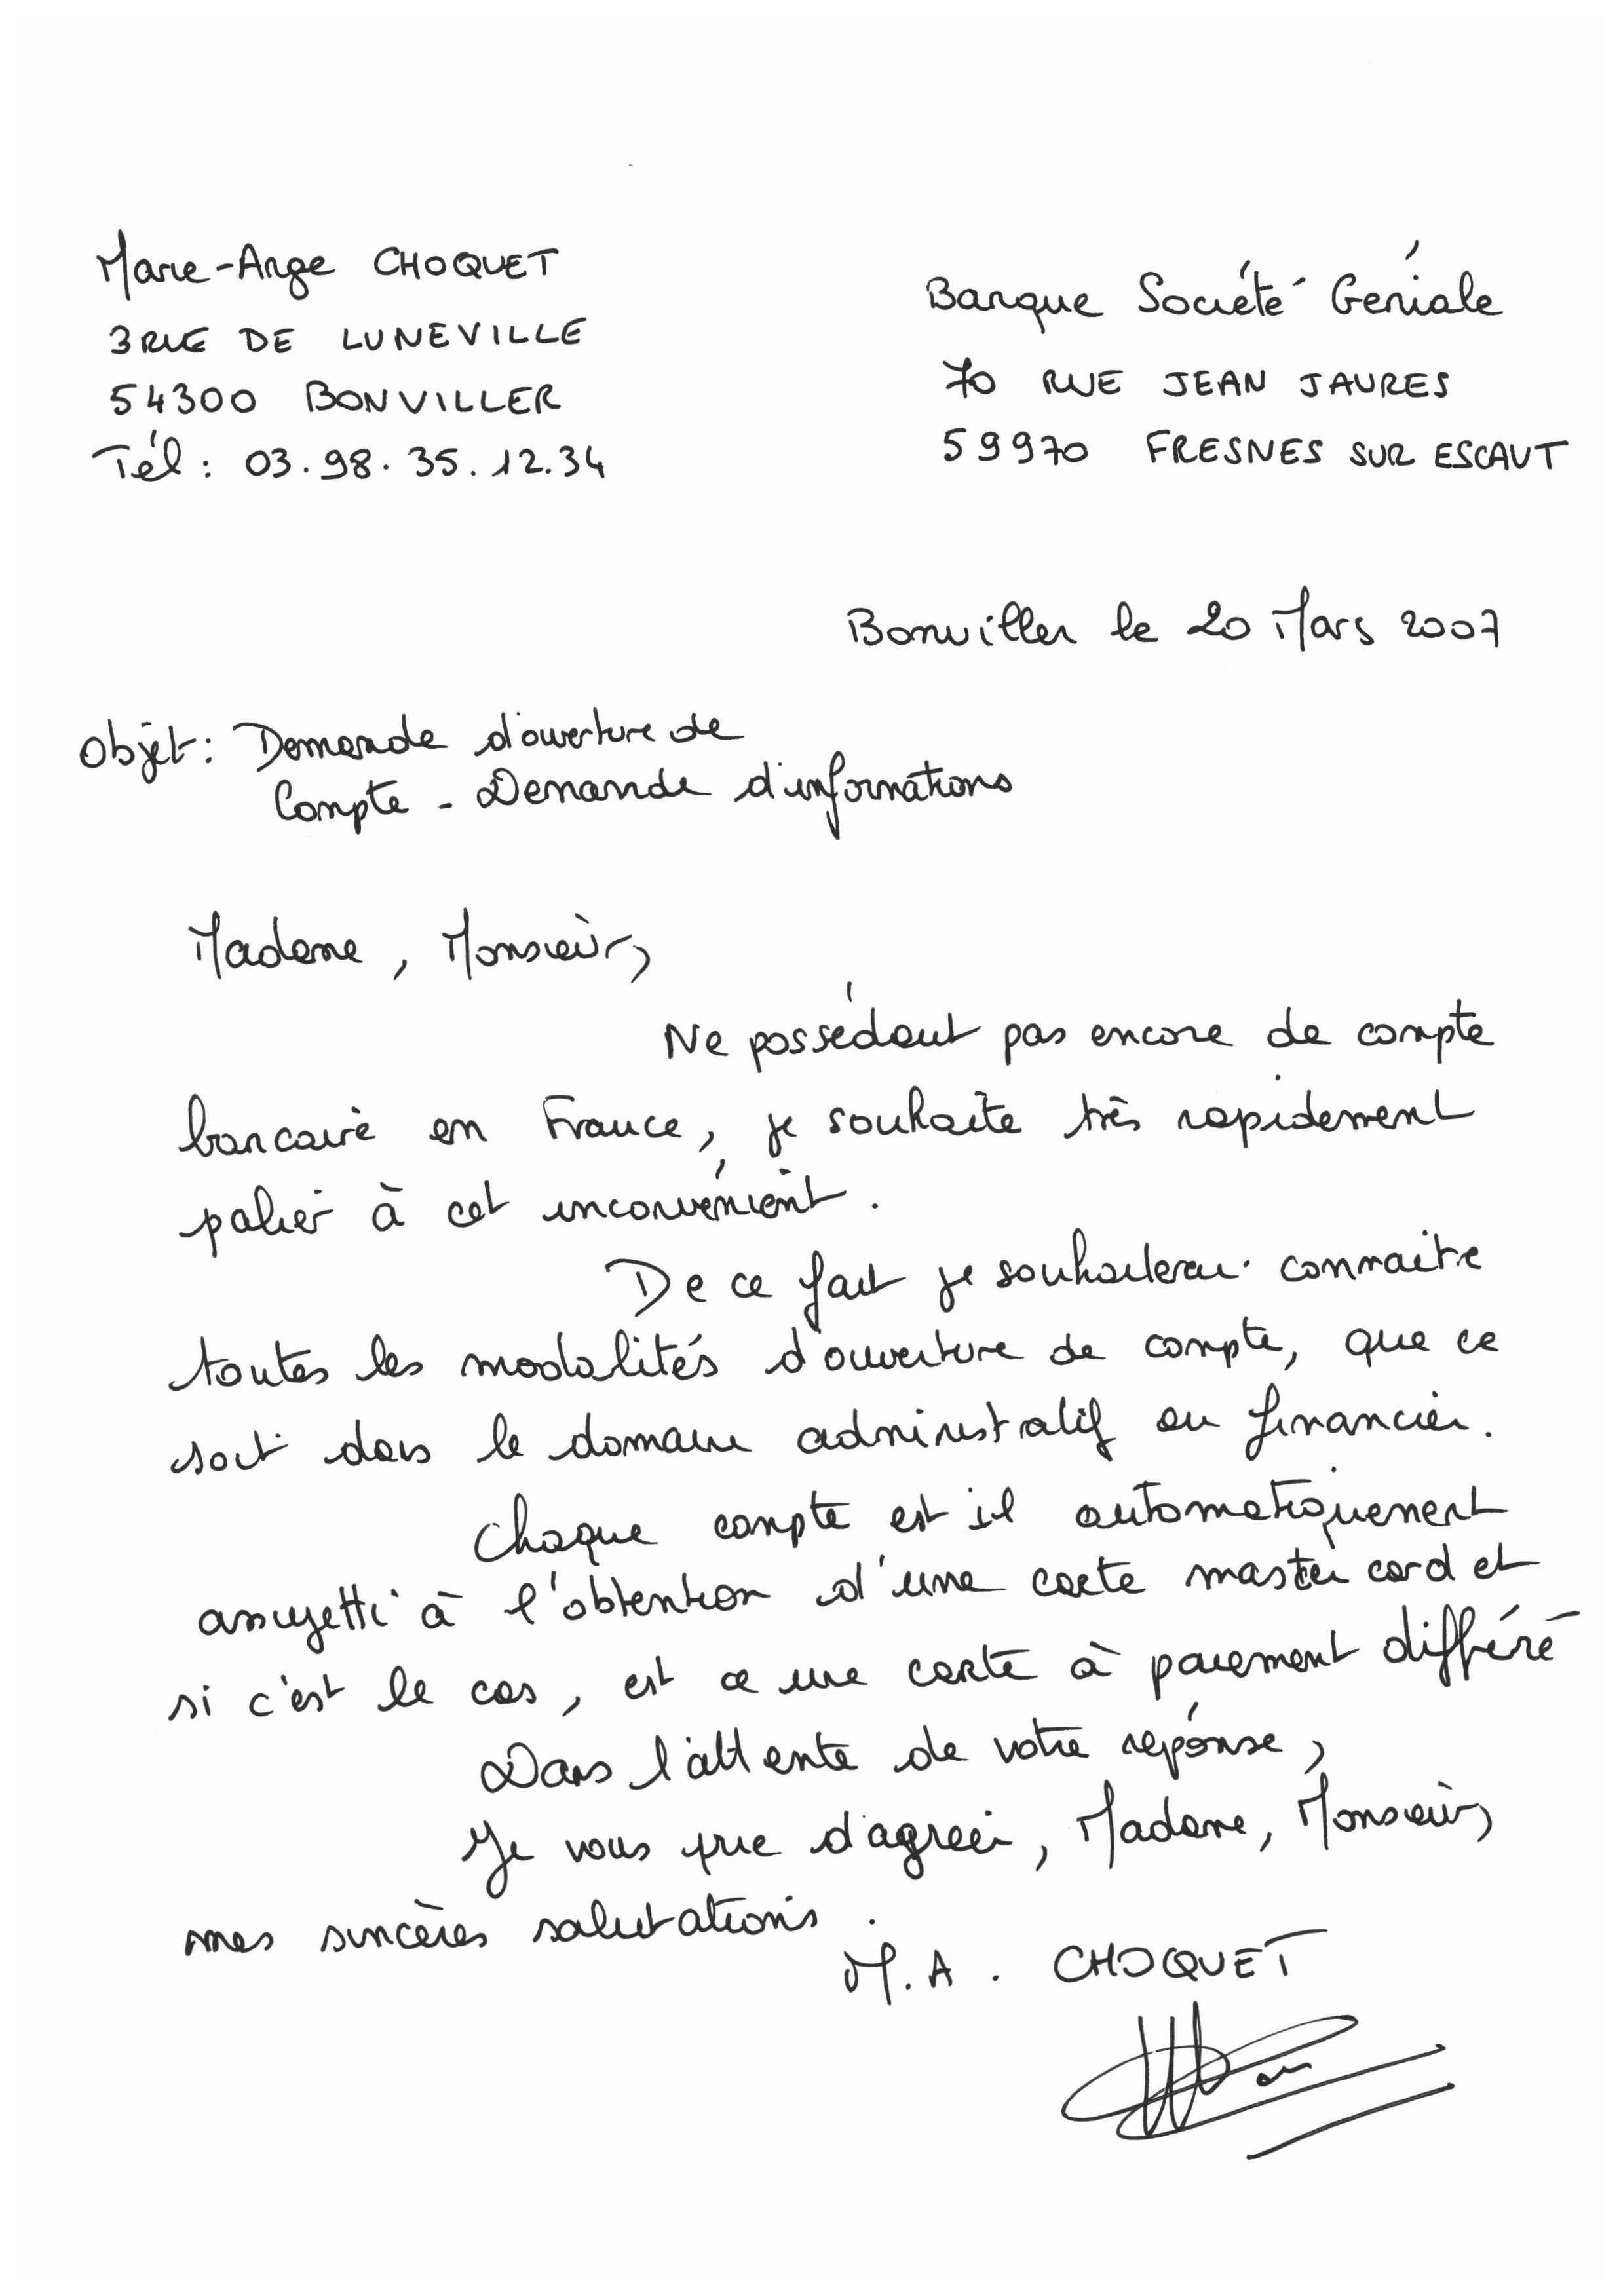 Marie-Ange CHOQUET
3 RUE DE LUNEVILLE
54300 BONVILLER
Tél : 03.98.35.12.34
Banque Société Géniale
70 RUE JEAN JAURES
59970 FRESNES SUR ESCAUT
Bonviller le 20 Mars 2007
Objet : Demande d'ouverture de
Compte - Demande d'informations
Madame, Monsieur,
Ne possédant pas encore de compte
bancaire en France, je souhaite très rapidement
palier à cet inconvénient.
De ce fait je souhaiterai connaitre
toutes les modalités d'ouverture de compte, que ce
soit dans le domaine administratif ou financier.
Chaque compte est il automatiquement
assujetti à l'obtention d'une carte master card et
si c'est le cas, est ce une carte à paiement différé
Dans l'attente de votre réponse,
Je vous prie d'agréer, Madame, Monsieur,
mes sincères salutations.
M.A. CHOQUET